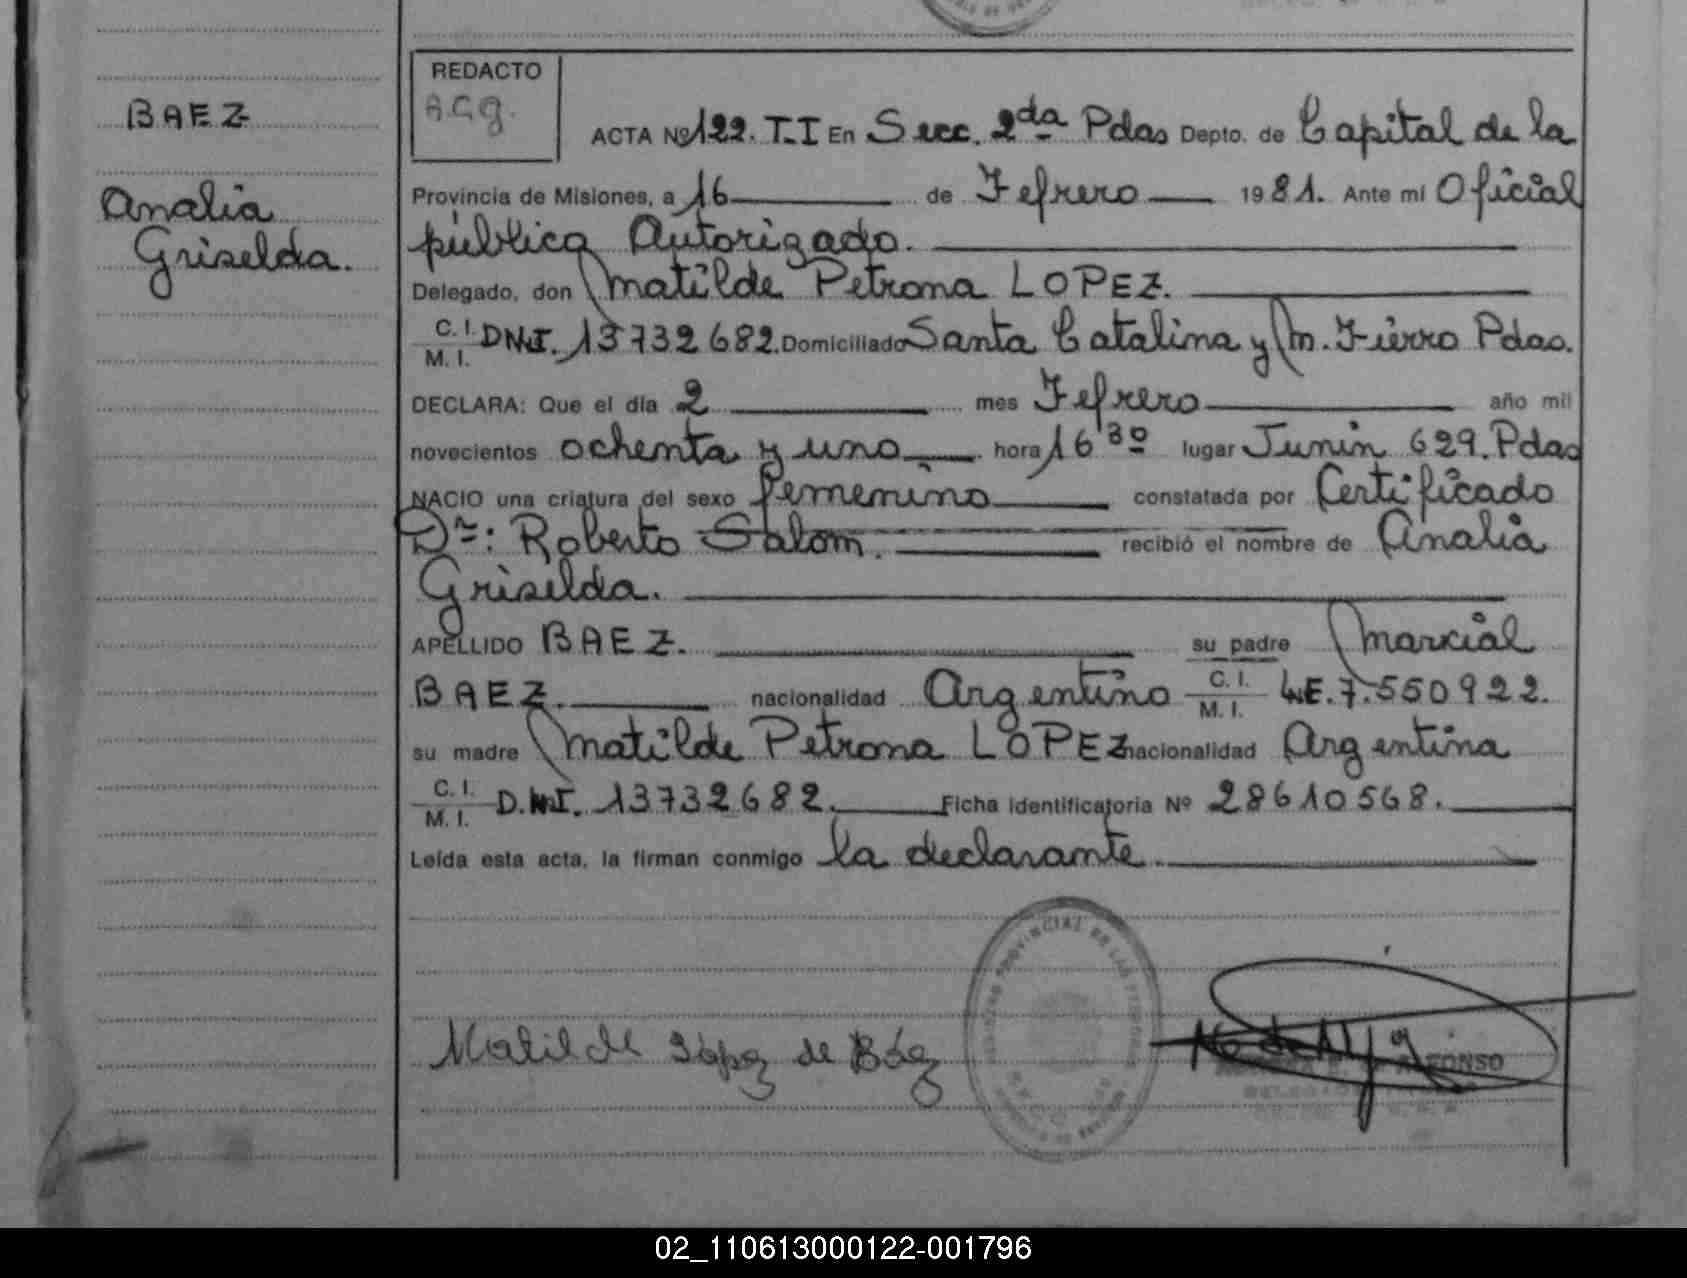 BAEZ
Analia
Griselda.
REDACTO
A.G.g.
ACTA Nº 122. T.I En Secc. 2da Pdas Depto. de Capital de la
Provincia de Misiones, a 16 de Febrero 1981. Ante mi Oficial
pública Autorizado.
Delegado, don Matilde Petrona LOPEZ.
C. I.
M. I. DNI. 13732682. Domiciliado Santa Catalina y M. Fierro Pdas.
DECLARA: Que el día 2 mes Febrero año mil
novecientos ochenta y uno hora 16 30 lugar Junin 629. Pdas
NACIO una criatura del sexo femenino constatada por Certificado
Dr: Roberto Salom. recibió el nombre de Analia
Griselda.
APELLIDO BAEZ. su padre Marcial
BAEZ. nacionalidad Argentino C. I. M. I. L.E. 7.550922.
su madre Matilde Petrona LOPEZ nacionalidad Argentina
C. I.
M. I. D.N.I. 13732682. Ficha identificatoria Nº 28610568.
Leída esta acta, la firman conmigo la declarante
Matilde López de Báez
02_110613000122-001796